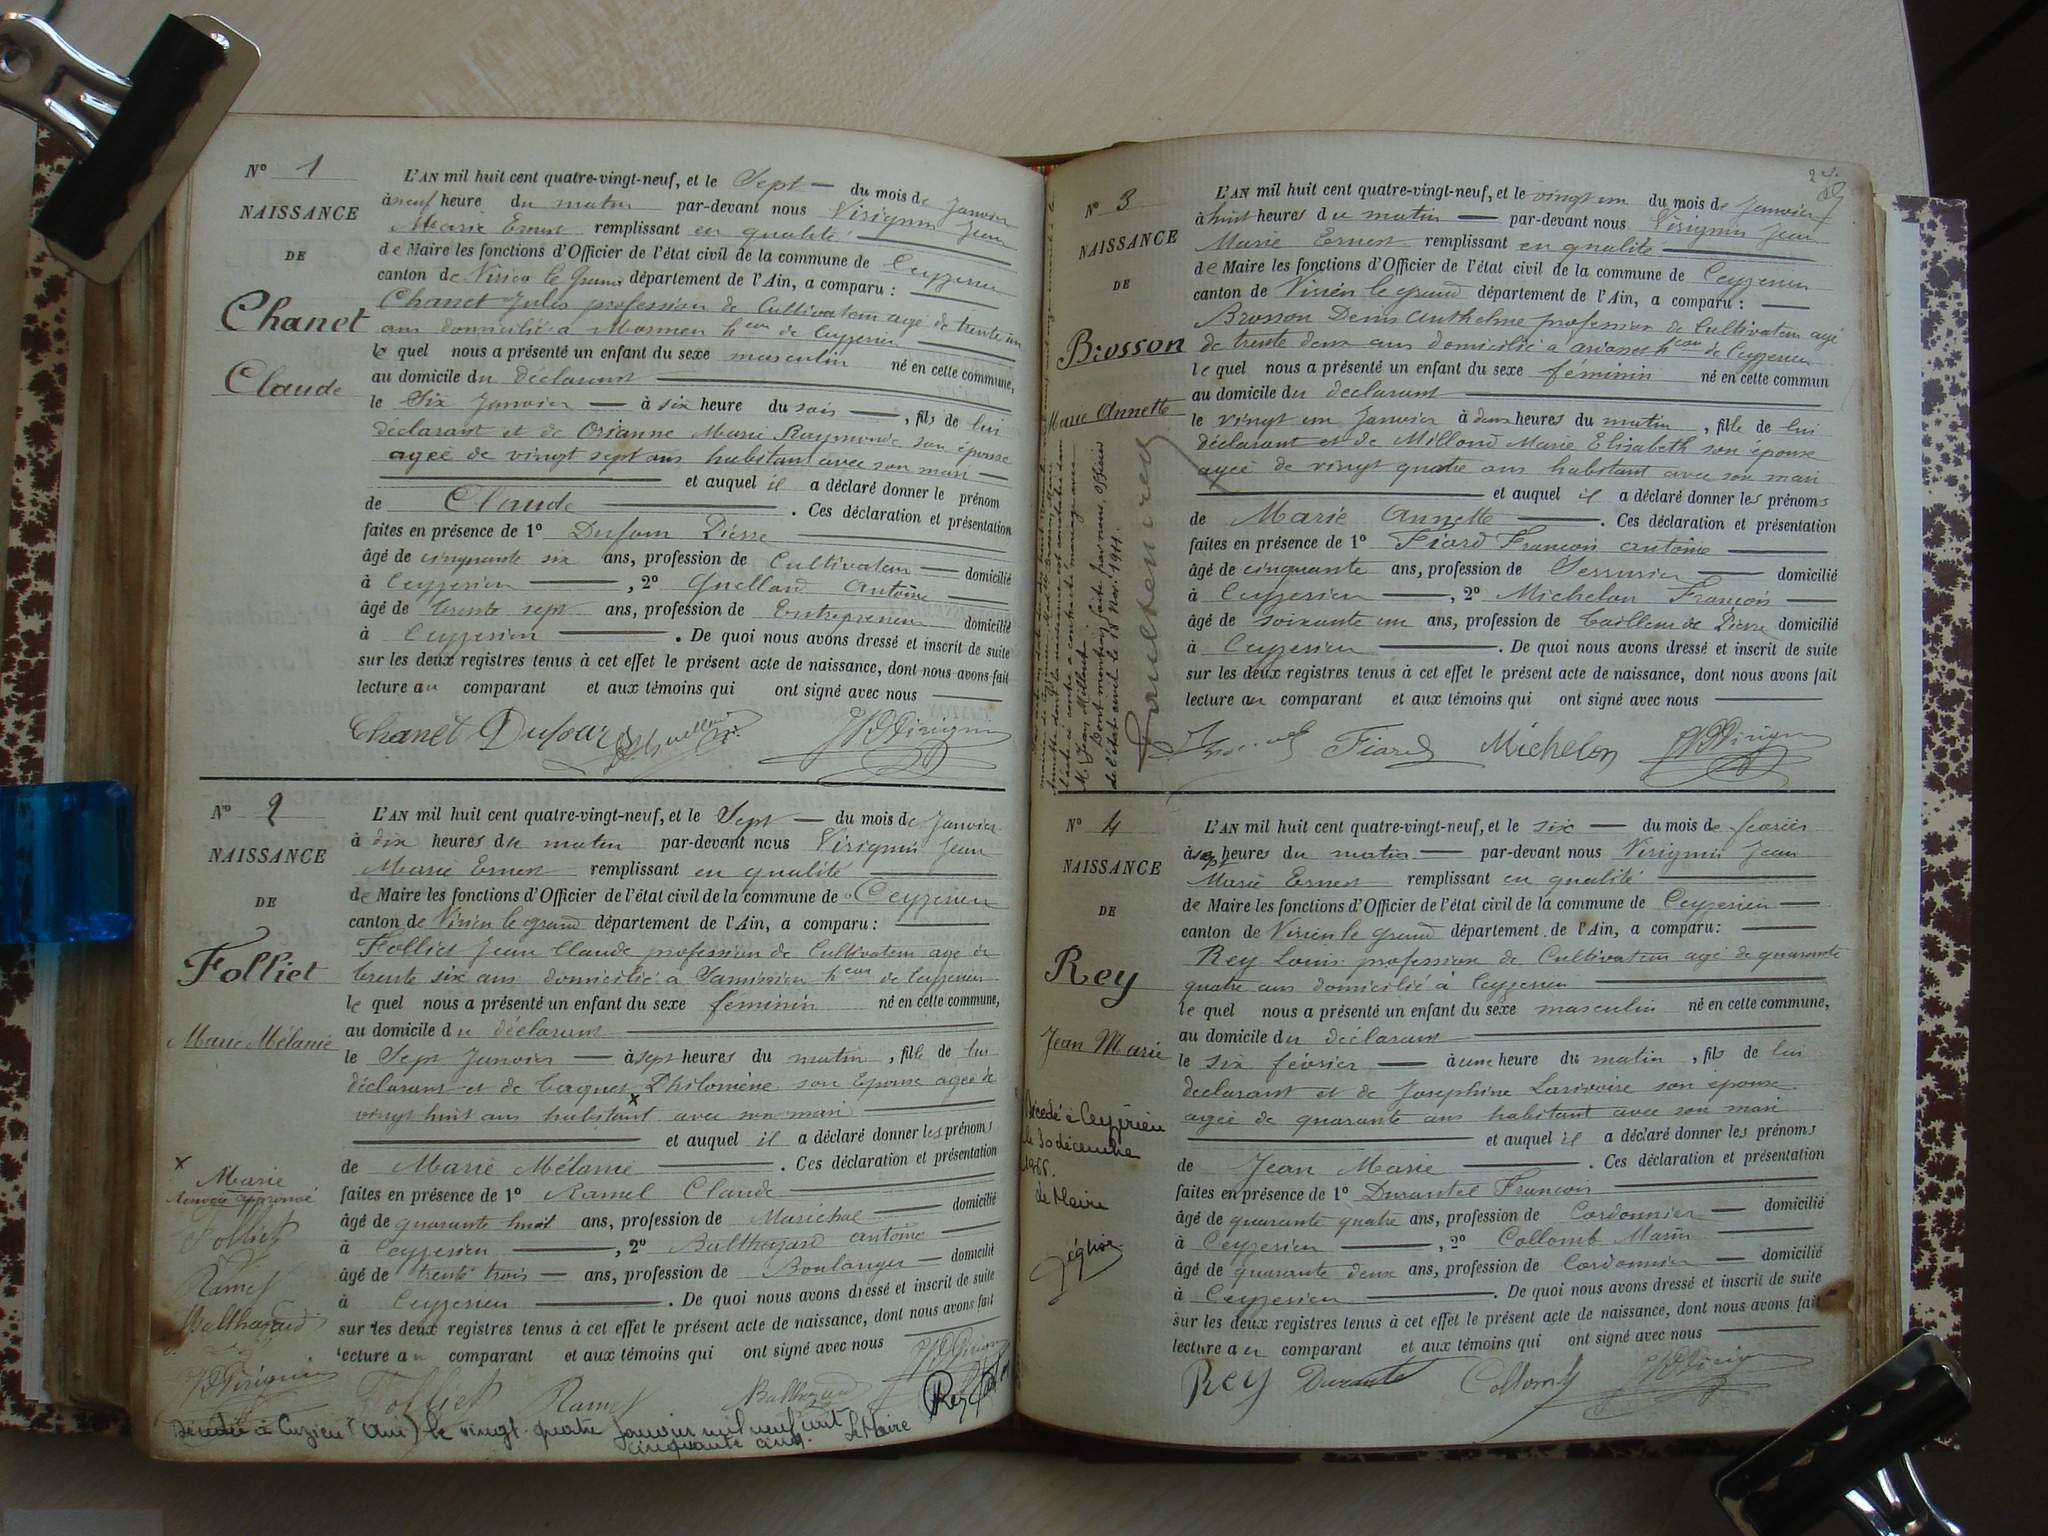 N° 1
NAISSANCE
DE
Chanet
Claude
L'AN mil huit cent quatre-vingt-neuf, et le Sept du mois de Janvier
à neuf heure du matin par-devant nous Virignin Jean
Marie Ernest remplissant en qualité
de Maire les fonctions d'Officier de l'état civil de la commune de Ceyzerieu
canton de Virieu le Grand département de l'Ain, a comparu :
Chanet Jules profession de Cultivateur agé de trente un
ans domicilié à Mormen heau de Ceyzerieu
le quel nous a présenté un enfant du sexe masculin né en cette commune,
au domicile du déclarant
le Six Janvier à six heure du soir , fils de lui
déclarant et de Orianne Marie Raymonde son épouse
agée de vingt sept ans habitant avec son mari
et auquel il a déclaré donner le prénom
de Claude . Ces déclaration et présentation
faites en présence de 1° Dufour Pierre
âgé de cinquante six ans, profession de Cultivateur domicilié
à Ceyzerieu , 2° Antoine
âgé de trente sept ans, profession de Entrepreneur domicilié
à Ceyzerieu . De quoi nous avons dressé et inscrit de suite
sur les deux registres tenus à cet effet le présent acte de naissance, dont nous avons fait
lecture au comparant et aux témoins qui ont signé avec nous
Chanet Dufour
N° 2
NAISSANCE
DE
Folliet
Marie Mélanie
L'AN mil huit cent quatre-vingt-neuf, et le Sept du mois de Janvier
à dix heures du matin par-devant nous Virignin Jean
Marie Ernest remplissant en qualité
de Maire les fonctions d'Officier de l'état civil de la commune de Ceyzerieu
canton de Virieu le grand département de l'Ain, a comparu :
Folliet Jean Claude profession de Cultivateur agé de
trente six ans domicilié à heau de Ceyzerieu
le quel nous a présenté un enfant du sexe féminin né en cette commune,
au domicile du déclarant
le Sept Janvier à sept heures du matin , fille de lui
déclarant et de Philomène son Epouse agée de
vingt huit ans habitant x avec son mari
et auquel il a déclaré donner les prénoms
de Marie Mélanie . Ces déclaration et présentation
faites en présence de 1° Ramel Claude
âgé de quarante huit ans, profession de Maréchal domicilié
à Ceyzerieu , 2° Balthazard antoine
âgé de trente trois ans, profession de Boulanger domicilié
à Ceyzerieu . De quoi nous avons dressé et inscrit de suite
sur les deux registres tenus à cet effet le présent acte de naissance, dont nous avons fait
lecture au comparant et aux témoins qui ont signé avec nous
Folliet Ramel Balthazard
x Marie
Renvoi approuvé
Folliet
Ramel
Balthazard
Virignin
Décédée à Cuzieu (Ain) le vingt quatre Janvier mil neuf cent
cinquante cinq. Le Maire
N° 3
NAISSANCE
DE
Brosson
Marie Annette
L'AN mil huit cent quatre-vingt-neuf, et le vingt un du mois de Janvier
à huit heures du matin par-devant nous Virignin Jean
Marie Ernest remplissant en qualité
de Maire les fonctions d'Officier de l'état civil de la commune de Ceyzerieu
canton de Virieu le grand département de l'Ain, a comparu :
Brosson Denis Anthelme profession de Cultivateur agé
de trente deux ans domicilié à heau de Ceyzerieu
le quel nous a présenté un enfant du sexe féminin né en cette commun
au domicile du declarant
le vingt un Janvier à deux heures du matin , fille de lui
déclarant et de Milloud Marie Elisabeth son épouse
agée de vingt quatre ans habitant avec son mari
et auquel il a déclaré donner les prénoms
de Marie Annette . Ces déclaration et présentation
faites en présence de 1° Fiard François antoine
âgé de cinquante ans, profession de Serrurier domicilié
à Ceyzerieu , 2° Michelon François
âgé de soixante un ans, profession de Tailleur de Pierre domicilié
à Ceyzerieu . De quoi nous avons dressé et inscrit de suite
sur les deux registres tenus à cet effet le présent acte de naissance, dont nous avons fait
lecture au comparant et aux témoins qui ont signé avec nous
Fiard Michelon
l'acte ci contre a contracté mariage avec
Mr Jean
Dont mention faite par nous, Officier
de l'état civil le 18 Nov. 1911.
N° 4
NAISSANCE
DE
Rey
Jean Marie
L'AN mil huit cent quatre-vingt-neuf, et le six du mois de fevrier
à sept heures du matin par-devant nous Virignin Jean
Marie Ernest remplissant en qualité
de Maire les fonctions d'Officier de l'état civil de la commune de Ceyzerieu
canton de Virieu le grand département de l'Ain, a comparu :
Rey Louis profession de Cultivateur agé de quarante
quatre ans domicilié à Ceyzerieu
le quel nous a présenté un enfant du sexe masculin né en cette commune,
au domicile du déclarant
le six février à une heure du matin , fils de lui
declarant et de Josephine Larivoire son épouse
agée de quarante ans habitant avec son mari
et auquel il a déclaré donner les prénoms
de Jean Marie . Ces déclaration et présentation
faites en présence de 1° Durantel François
âgé de quarante quatre ans, profession de Cordonnier domicilié
à Ceyzerieu , 2° Collomb Marin
âgé de quarante deux ans, profession de Cordonnier domicilié
à Ceyzerieu . De quoi nous avons dressé et inscrit de suite
sur les deux registres tenus à cet effet le présent acte de naissance, dont nous avons fait
lecture au comparant et aux témoins qui ont signé avec nous
Rey Collomb
Décédé à Ceyzérieu
le 30 décembre
1966.
Le Maire